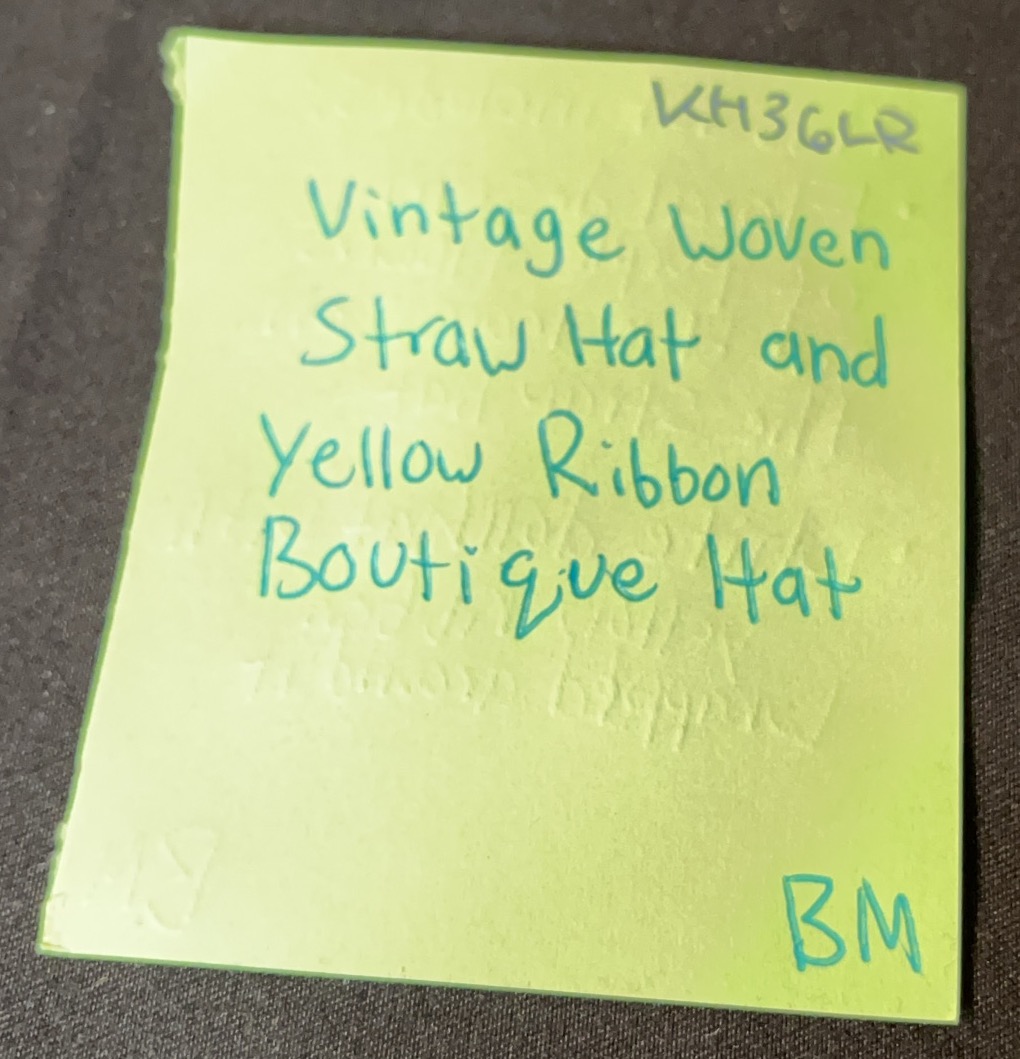 KH36LR
Vintage Woven
Straw Hat and
Yellow Ribbon
Boutique Hat
BM